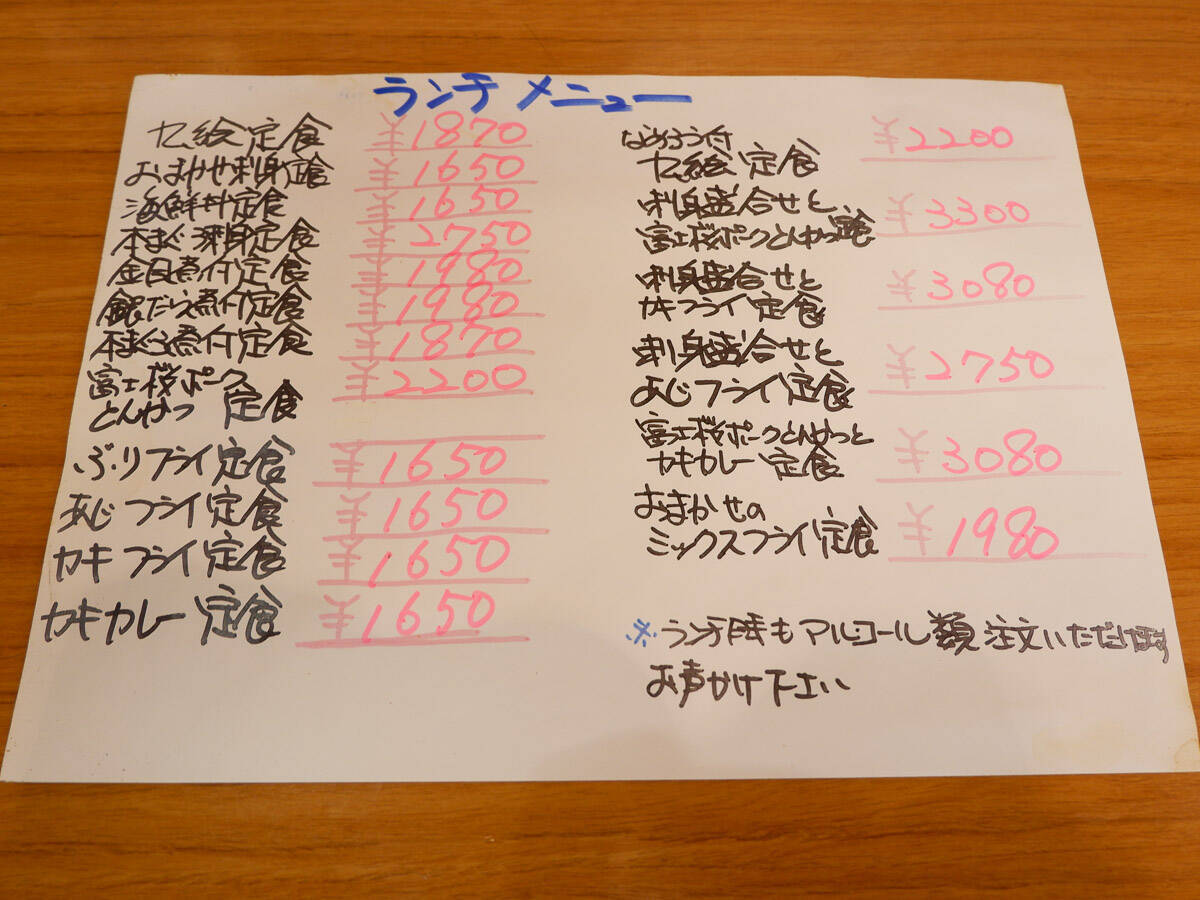 ランチメニュー
七絵定食 ¥1870
おまかせ刺身定食 ¥1650
海鮮丼定食 ¥1650
本まぐろ刺身定食 ¥2750
金目煮付定食 ¥1980
銀だら煮付定食 ¥1980
本まぐろ煮付定食 ¥1870
富士桜ポーク ¥2200
とんかつ 定食
ぶりフライ定食 ¥1650
あじフライ定食 ¥1650
カキフライ定食 ¥1650
カキカレー定食 ¥1650
なめろう付 ¥2200
七絵定食
刺身盛合せと、 ¥3300
富士桜ポークとんかつ定食
刺身盛合せと ¥3080
カキフライ定食
刺身盛合せと、 ¥2750
あじフライ定食
富士桜ポークとんかつと ¥3080
カキカレー定食
おまかせの ¥1980
ミックスフライ定食
※ランチ時もアルコール類注文いただけます
お声かけ下さい